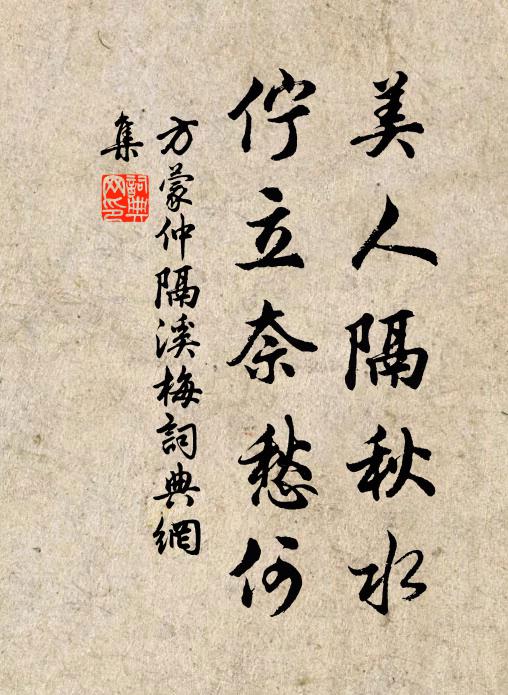 美人隔秋水
佇立奈愁何
方蒙仲隔溪梅詞典網
集
詞典网印